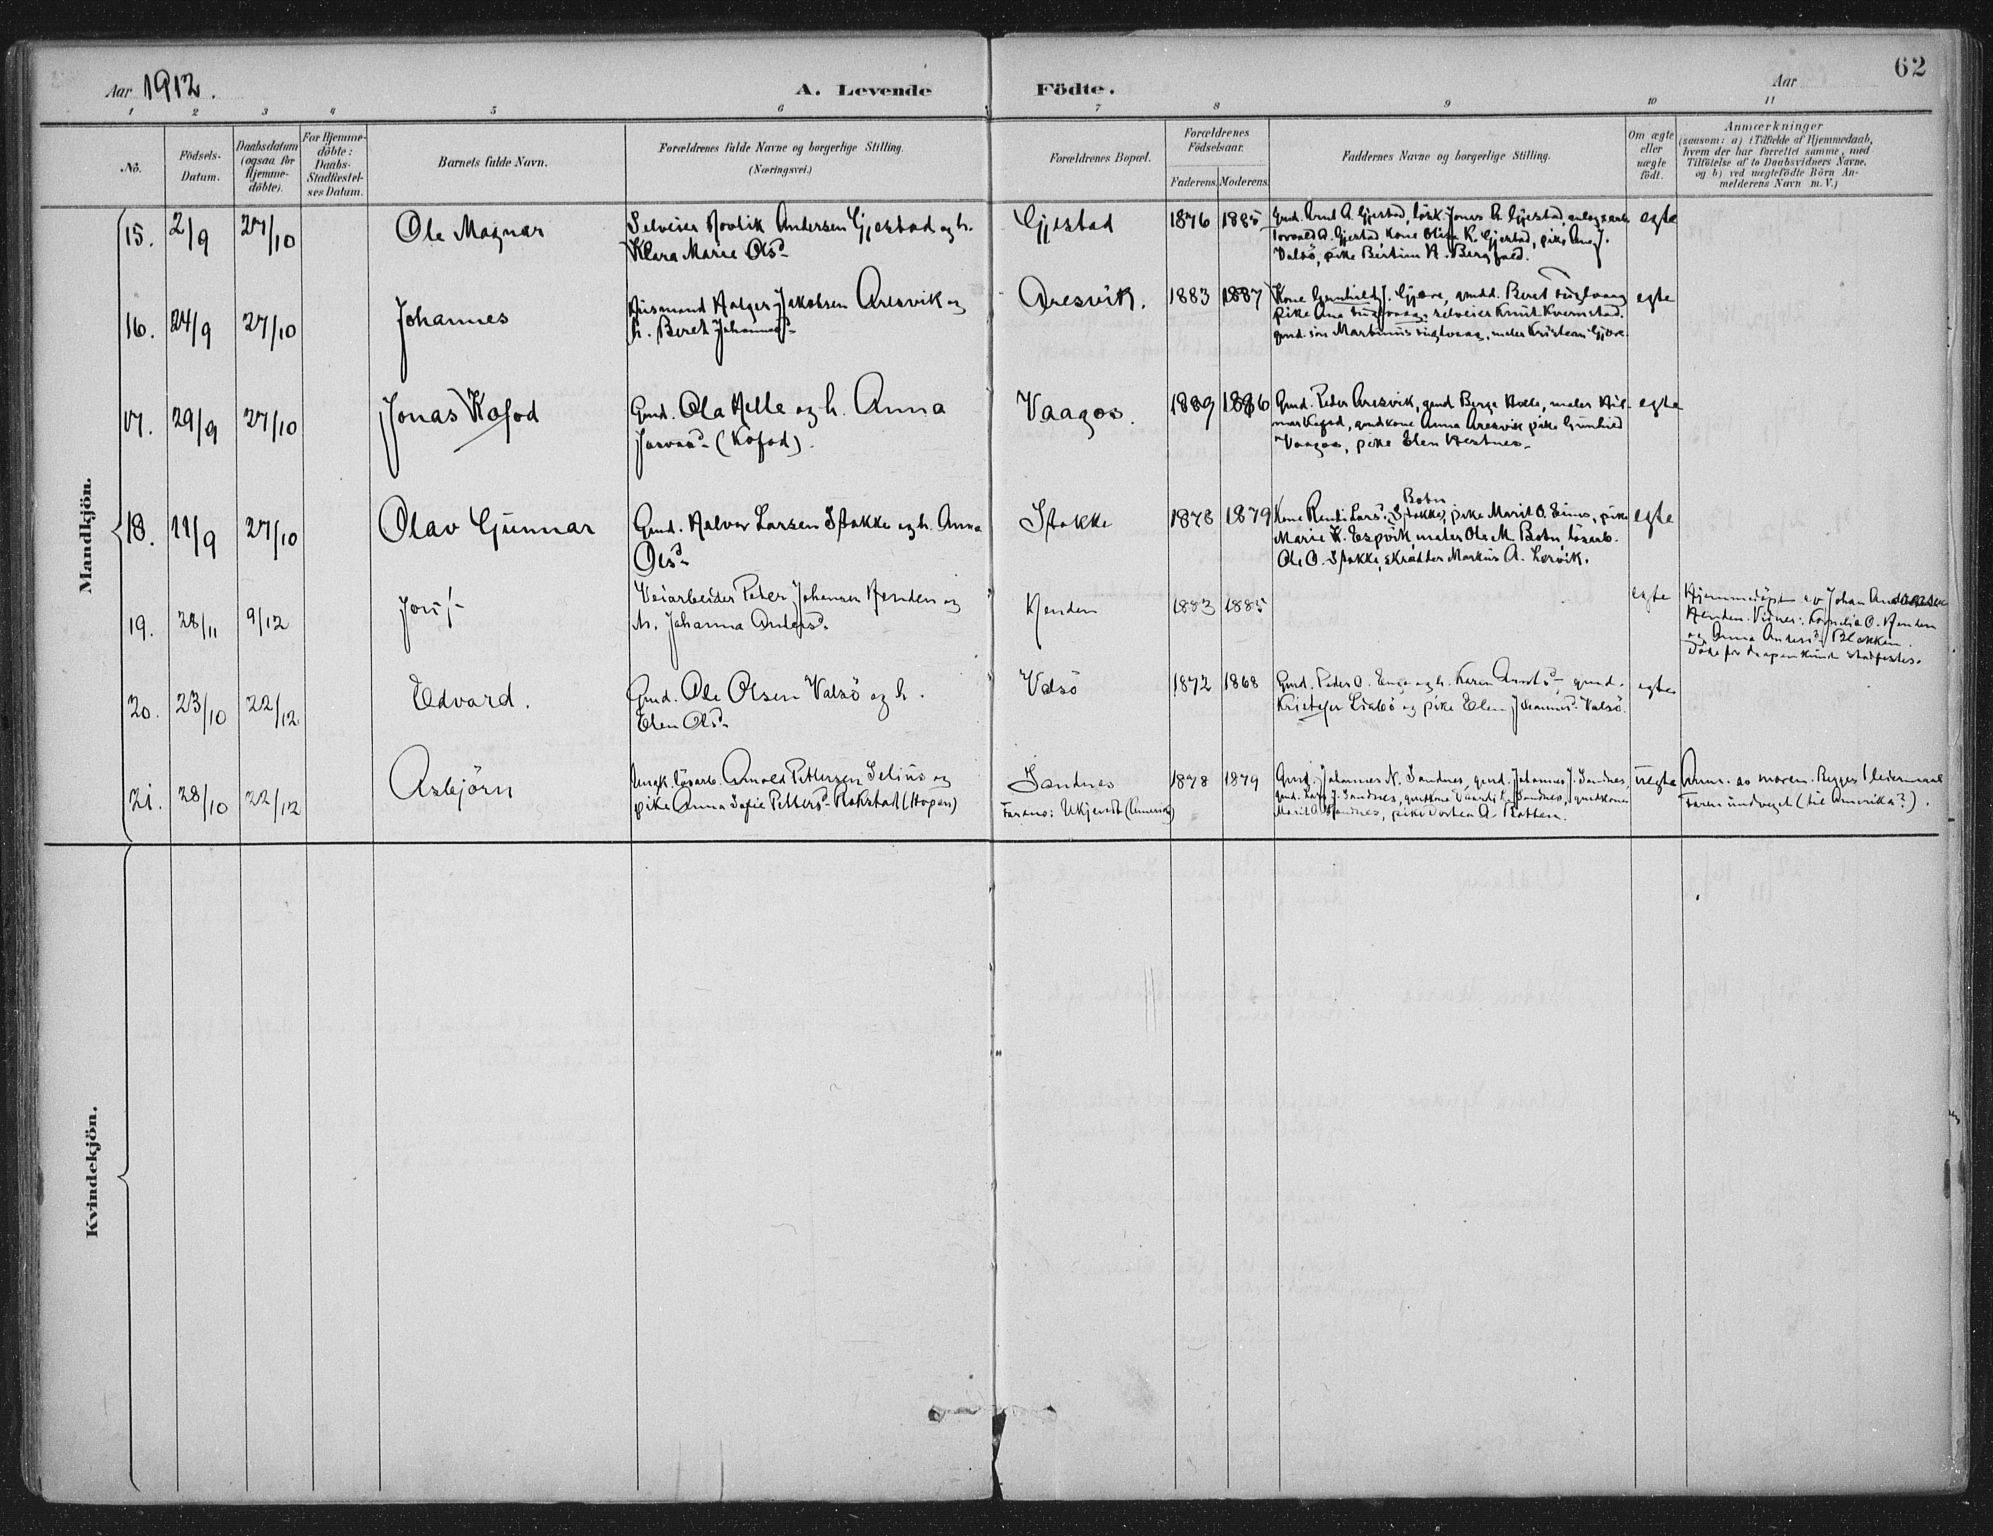 62
Aar 1912. A. Levende Födte. Aar
1 2 3 4 5 6 7 8 9 10 11
No.
Födsels-
Datum.
Daabsdatum
(ogsaa for
Hjemme-
döbte).
For Hjemme-
döbte:
Daabs-
Stadfæstel-
ses Datum.
Barnets fulde Navn.
Forældrenes fulde Navne og borgerlige Stilling.
(Næringsvei.)
Forældrenes Bopæl.
Forældrenes
Födselsaar.
Faderens. Moderens.
Faddernes Navne og borgerlige Stilling.
Om ægte
eller
uægte
födt.
Anmærkninger
(saasom: a) i Tilfælde af Hjemmedaab,
hvem der har forrettet samme, med
Tilföielse af to Daabsvidners Navne.
og b) ved uægtefödte Börn An-
melderens Navn m. V.)
Mandkjön.
15. 2/9 27/10 Ole Magnar
Selveier Andersen Gjestad og h.
Klara Marie Olsd.
Gjestad 1876 1885
Gmd. Arnt A. Gjestad, lösk. Jonas Gjestad,
Gjestad kone K. Gjestad, pike
Valsö, pike
egte
16. 24/9 27/10 Johannes
Husmand Holger Jakobsen Aresvik og
h. Beret Johannesd.
Aresvik. 1883 1887
Kone Gunhild J. Gjøre, gmdd. Beret Fuglvaag
pike Ana Fuglvaag, selveier Knut Kvernstad
gmd. sön Martinus Fuglvaag, maler Kristian Gjøre.
egte
17. 29/9 27/10 Jonas Kofod
Gmd. Ola Helle og h. Anna
(Kofod).
Vaagos. 1889 1886
Gmd. Peder Aresvik, gmd Helle, maler Hil-
mar Kofod, gmdkone Anna Aresvik pike Gunhild
Vaagos, pike Elen Hestnes.
egte
18. 11/9 27/10 Olav Gunnar
Gmd. Halvor Larsen Stokke og h. Anna
Olsd.
Stokke 1878 1879
Botn
Kone Larsd. Stokke, pike Marit O. pike
Marie K. Espvik maler Ole M. Botn lösarb.
Ole O. Stokke, skrædder Markus A. Lervik.
egte
19. 28/11 9/12
Veiarbeider Peder Johansen Henden og
h. Johanna Andersd.
Henden 1883 1885
egte
Hjemmedöpt av Johan Andersen
Henden. Vidner: Kornelia O. Henden
og Anna Andersd. Blekken.
Döde för daapen kunde stadfestes.
20. 23/10 22/12 Edvard.
Gmd. Ole Olsen Valsö og h.
Elen Olsd.
Valsö 1872 1868
Gmd. Peder O. Enge og h. Karen Arntsd., gmd.
Kristofer Liabö og pike Elen Johannesd. Valsö.
egte
21. 28/10 22/12 Asbjörn
Ungk. lösarb. Arnold Pettersen Selius og
pike Anna Sofie Pettersd. Rokstad (Hopen)
Sandnes
Farens: Ukjendt (Amerika)
1878 1879
Gmd. Johannes N. Sandnes, gmd. Johannes J. Sandnes,
gmd. Lars J. Sandnes, gmdkone Sandnes, gmdkone
Marit O. Sandnes, pike Dortea A. Botten.
uegte
Anm. av moren. Begges 1 leiermaal
Faren undveget (til Amerika?).
Kvindekjön.